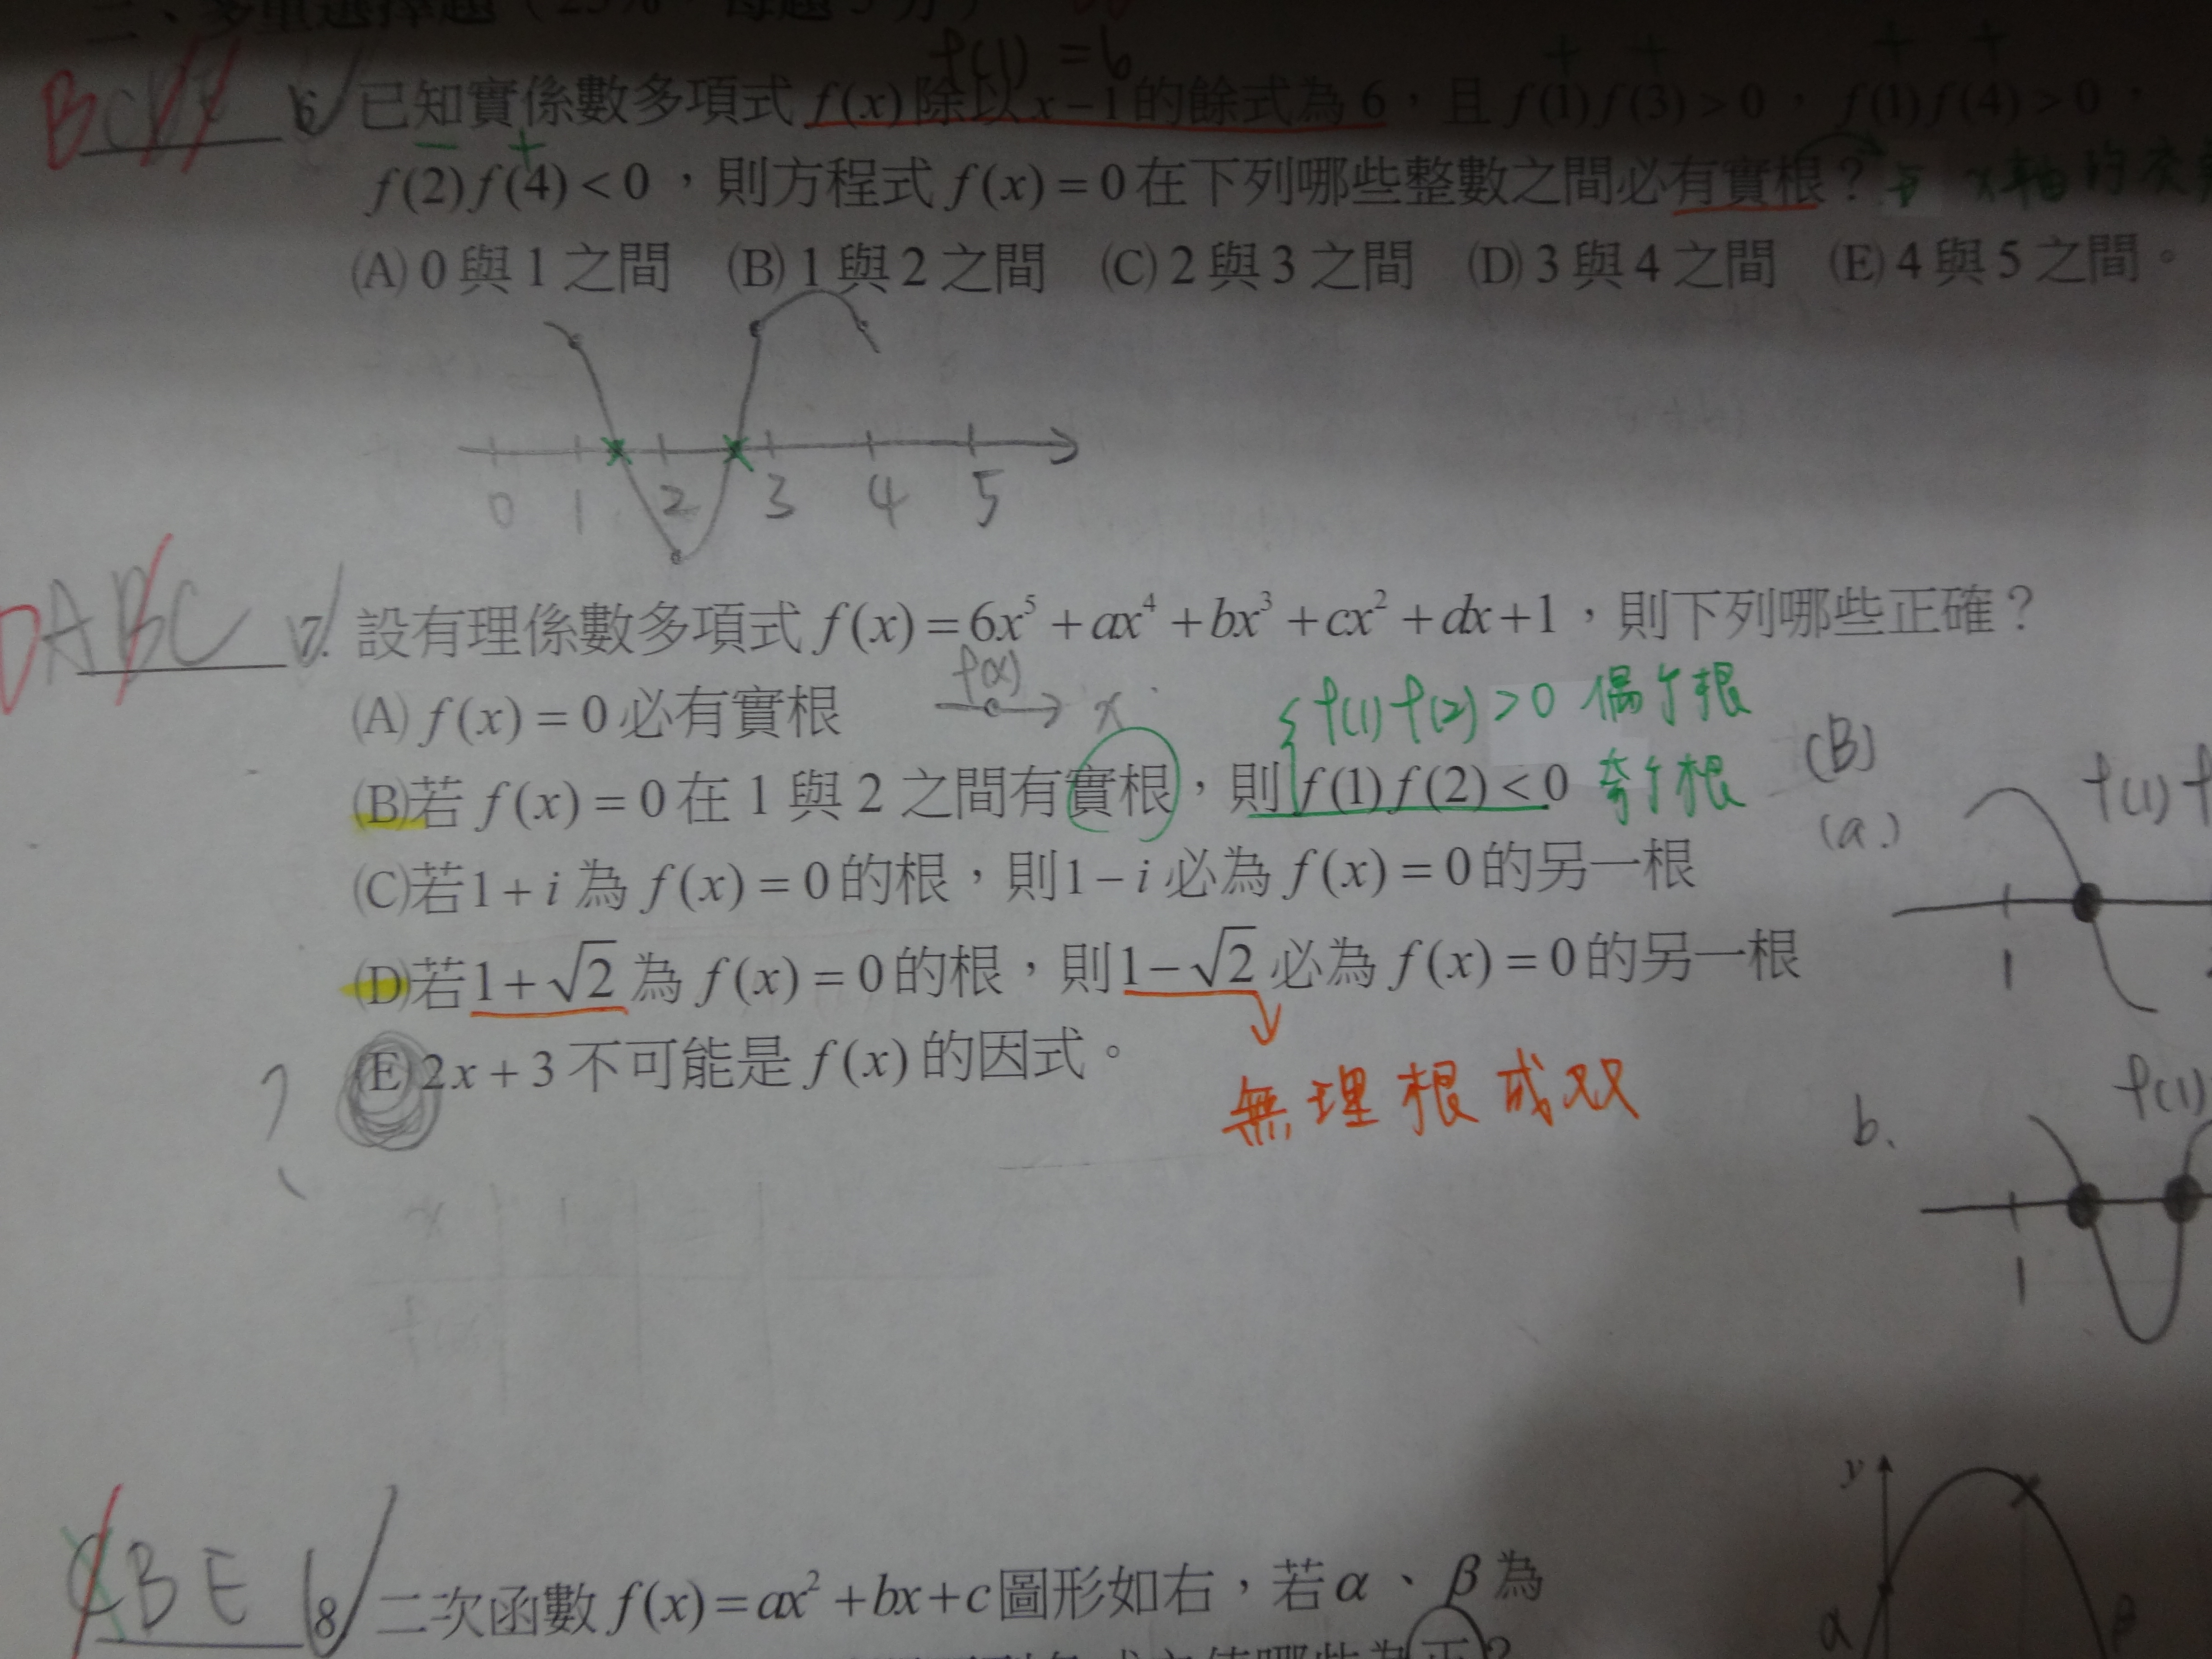 二、多重選擇題（25%，每題5分）
f(1) = 6
BC
6. 已知實係數多項式 f(x) 除以 x−1 的餘式為 6，且 f(1)f(3)>0，f(1)f(4)>0，
+ + + +
− +
f(2)f(4)<0，則方程式 f(x)=0 在下列哪些整數之間必有實根？ x軸的交
(A) 0與1之間 (B) 1與2之間 (C) 2與3之間 (D) 3與4之間 (E) 4與5之間。
0 1 2 3 4 5
DABC 7. 設有理係數多項式 f(x)=6x⁵+ax⁴+bx³+cx²+dx+1，則下列哪些正確？
(A) f(x)=0 必有實根
f(x) x
f(1)f(2)>0 偶个根
(B)若 f(x)=0 在 1 與 2 之間有實根，則 f(1)f(2)<0 奇个根
(B)
(a.)
f(1)f
1
(C)若 1+i 為 f(x)=0 的根，則 1−i 必為 f(x)=0 的另一根
(D)若 1+√2 為 f(x)=0 的根，則 1−√2 必為 f(x)=0 的另一根
(E) 2x+3 不可能是 f(x) 的因式。
?
無理根成双
b.
f(1)
1
CBE 8 二次函數 f(x)=ax²+bx+c 圖形如右，若 α、β 為
y
α
β